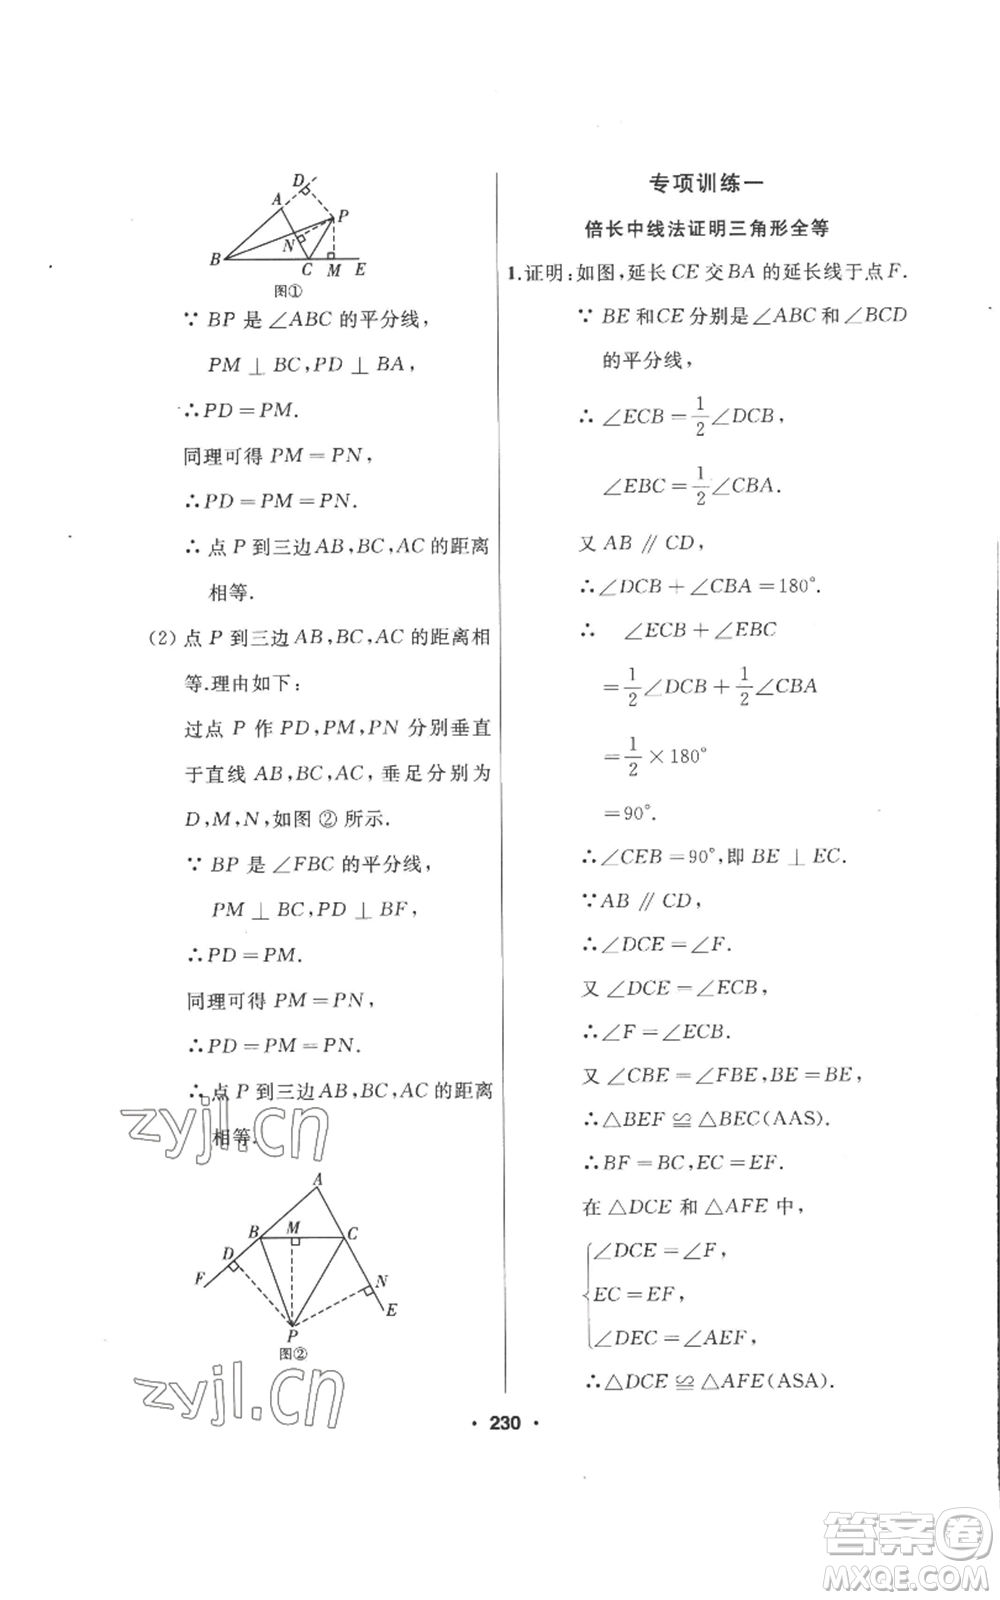 D
A
P
N
B
C
M
E
图①
∵ BP 是 ∠ABC 的平分线,
PM ⊥ BC,PD ⊥ BA,
∴PD=PM.
同理可得 PM=PN,
∴PD=PM=PN.
∴ 点 P 到三边 AB,BC,AC 的距离
相等.
(2) 点 P 到三边 AB,BC,AC 的距离相
等.理由如下:
过点 P 作 PD,PM,PN 分别垂直
于直线 AB,BC,AC,垂足分别为
D,M,N,如图 ② 所示.
∵ BP 是 ∠FBC 的平分线,
PM ⊥ BC,PD ⊥ BF,
∴PD=PM.
同理可得 PM=PN,
∴PD=PM=PN.
∴ 点 P 到三边 AB,BC,AC 的距离
相等.
zyjl.cn
A
B
M
C
D
F
N
E
P
图②
zyjl.cn
专项训练一
倍长中线法证明三角形全等
1.证明:如图,延长 CE 交 BA 的延长线于点 F.
∵ BE 和 CE 分别是 ∠ABC 和 ∠BCD
的平分线,
∴ ∠ECB=1/2∠DCB,
∠EBC=1/2∠CBA.
又 AB // CD,
∴∠DCB+∠CBA=180°.
∴ ∠ECB+∠EBC
=1/2∠DCB+1/2∠CBA
=1/2×180°
=90°.
∴∠CEB=90°,即 BE ⊥ EC.
∵AB // CD,
∴∠DCE=∠F.
又 ∠DCE=∠ECB,
∴∠F=∠ECB.
又 ∠CBE=∠FBE,BE=BE,
∴△BEF≌△BEC(AAS).
∴BF=BC,EC=EF.
在 △DCE 和 △AFE 中,
∠DCE=∠F,
EC=EF,
∠DEC=∠AEF,
∴△DCE≌△AFE(ASA).
· 230 ·
答案卷
MXQE.COM